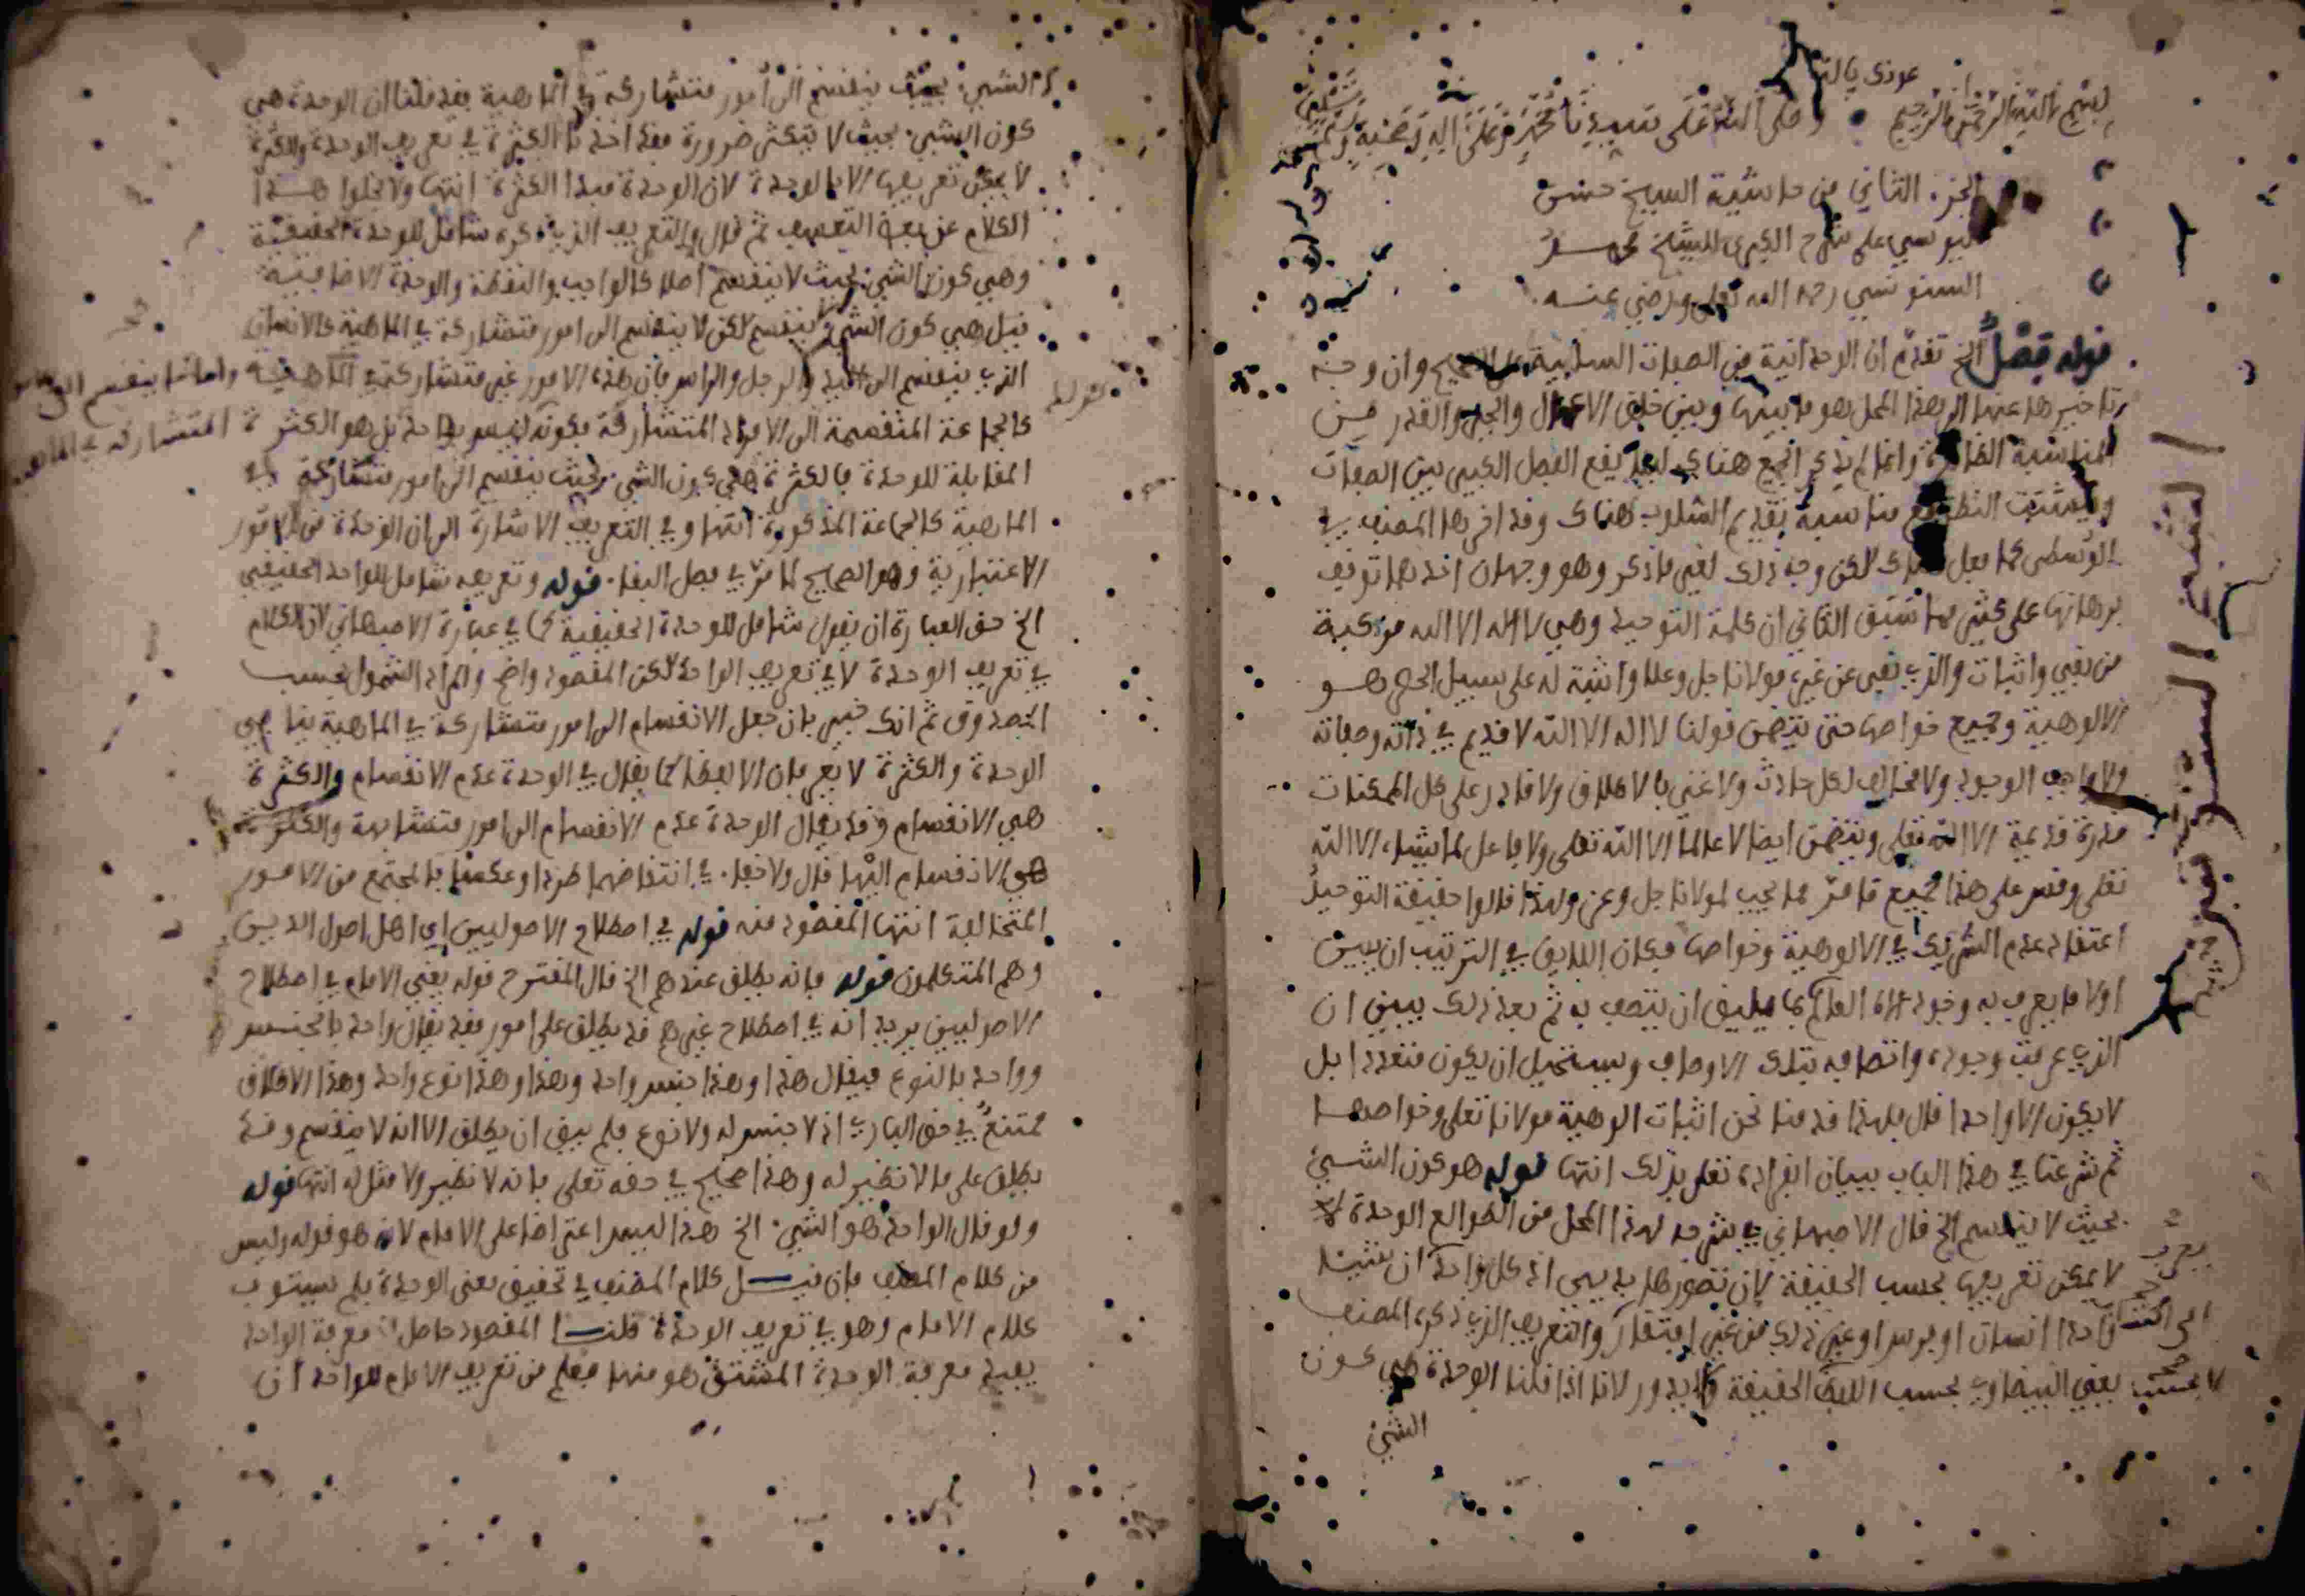 عوذى بالله
بسم الله الرحمن الرحيم وصلى الله على سيدنا محمد وعلى اله وصحبه وسلم تسليما
الجزء الثاني من حاشية الشيخ حسن
اليوسي على شرح الكبرى للشيخ محمد
السنوسي رحمه الله تعلى ورضي عنه
قوله فصل الخ تقدم ان الوحدانية من الصفات السلبية على الصحيح وان وجه
تاخيرها عنها الى هذا المحل هو ما بينها وبين خلق الاعمال والجبر والقدر من
المناسبة الظاهرة وانما لم يذكر الجميع هناك ليلا يقع الفصل الكبير بين الصفات
ويتشتت النظر مع مناسبة تقديم السلوب هناك وقد اخرها المصنف في
الوسطى كما فعل هناك لكن وجه ذلك لغير ما ذكر وهو وجهان احدهما توقف
برهانها على كثير مما سبق الثاني ان كلمة التوحيد وهي لا اله الا الله مركبة
من نفي واثبات والذي نفي عن غير مولانا جل وعلا واثبت له على سبيل الحصر هو
الالوهية وجميع خواصها حتى يتضمن قولنا لا اله الا الله لا قديم في ذاته وصفاته
ولا واجب الوجود ولا مخالف لكل حادث ولا غني بالاطلاق ولا قادر على كل الممكنات
قدرة قديمة الا الله تعلى ويتضمن ايضا لا عالما الا الله تعلى ولا فاعل لما يشاء الا الله
تعلى وقس على هذا جميع ما مر مما يجب لمولانا جل وعز ولهذا قالوا حقيقة التوحيد
اعتقاد عدم الشريك في الالوهية وخواصها فكان اللايق في الترتيب ان يبين
اولا ما يعرف به وجود اله العالم بما يليق ان يتصف به ثم بعد ذلك يبين ان
الذي عرفت وجوده واتصافه بتلك الاوصاف ويستحيل ان يكون متعددا بل
لا يكون الا واحدا قال فلهذا قدمنا نحن اثبات الوهية مولانا تعلى وخواصها
ثم شرعنا في هذا الباب ببيان انفراده تعلى بذلك انتهى قوله هو كون الشيء
بحيث لا ينقسم الخ قال الاصبهاني في شرحه لهذا المحل من الطوالع الوحدة
لا يمكن تعريفها بحسب الحقيقة لان تصورها بديهي اذ كل واحد
واحدا انسان او فرس او غير ذلك من غير افتقار والتعريف الذي ذكره المصنف
يعني البيضاوي بحسب اللفظ لا بحسب الحقيقة ولا يدور لانا اذا قلنا الوحدة هي كون
الشيء
الشيء بحيث لا ينقسم الى امور متشاركة في الماهية فقد قلنا ان الوحدة هي
كون الشيء بحيث لا يتكثر ضرورة فقد اخذنا الكثرة في تعريف الوحدة والكثرة
لا يمكن تعريفها الا بالوحدة لان الوحدة مبدا الكثرة انتهى ولا يخلوا هذا
الكلام عن بعض التعسف ثم قال والتعريف الذي ذكره شامل للوحدة الحقيقية
وهي كون الشيء بحيث لا ينقسم اصلا كالواجب والنقطة والوحدة الاضافية
قيل هي كون الشيء ينقسم لكن لا ينقسم الى امور متشاركة في الماهية كالانسان
الذي ينقسم الى اليد والرجل والراس فان هذه الامور غير متشاركة في الماهية واما ما ينقسم الى
المتشاركة في الماهية
كالجماعة المنقسمة الى الافراد المتشاركة فكونه ليس بواحد بل هو الكثرة
المقابلة للوحدة فالكثرة هي كون الشيء بحيث ينقسم الى امور متشاركة في
الماهية كالجماعة المذكورة انتهى وفي التعريف الاشارة الى ان الوحدة من الامور
الاعتبارية وهو الصحيح لما مر في فصل البقاء قوله وتعريفه شامل للواحد الحقيقي
الخ حق العبارة ان يقول شامل للوحدة الحقيقية كما في عبارة الاصبهاني لان الكلام
في تعريف الوحدة لا في تعريف الواحد لكن المقصود واضح والمراد الشمول بحسب
الصدق ثم انك خبير بان جعل الانقسام الى امور متشاركة في الماهية ينافي
الوحدة والكثرة لا يعرفان الا لفظا كما يقال في الوحدة عدم الانقسام والكثرة
هي الانقسام وقد يقال الوحدة عدم الانقسام الى امور متشابهة والكثرة
هي الانقسام اليها قال ولا خفاء في انتقاضهما طردا وعكسا بالمجتمع من الامور
المتخالفة انتهى المقصود منه قوله في اصطلاح الاصوليين اي اهل اصول الدين
وهم المتكلمون قوله فانه يطلق عندهم الخ قال المقترح قوله يعني الامام في اصطلاح
الاصوليين يريد انه في اصطلاح غيرهم قد يطلق على امور فقد يقال واحد بالجنس
وواحد بالنوع فيقال هذا وهذا جنس واحد وهذا وهذا نوع واحد وهذا الاطلاق
ممتنع في حق الباري اذ لا جنس له ولا نوع فلم يبق ان يطلق الا انه لا ينقسم وقد
يطلق على ما لا نظير له وهذا صحيح في حقه تعلى فانه لا نظير ولا مثل له انتهى قوله
ولو قال الواحد هو الشيء الخ هذا ليس اعتراضا على الامام لانه هو قوله وليس
من كلام المصنف فان قيل كلام المصنف في تحقيق معنى الوحدة فلم يستوف
كلام الامام وهو في تعريف الوحدة قلنا المقصود حاصل اذ معرفة الواحد
يفيد معرفة الوحدة المشتق هو منها فعلم من تعريف الامام للواحد ان